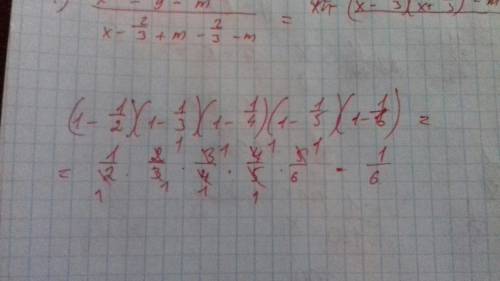 x - 2/3 + m - 2/3 - m =
(1 - 1/2)(1 - 1/3)(1 - 1/4)(1 - 1/5)(1 - 1/6) =
= 1/2 · 2/3 · 3/4 · 4/5 · 5/6 = 1/6